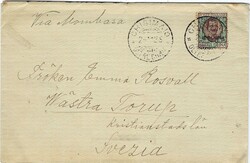 Via Mombasa
Fröken Emma Rosvall
Wästra Torup
Kristianstadslän
Svezia